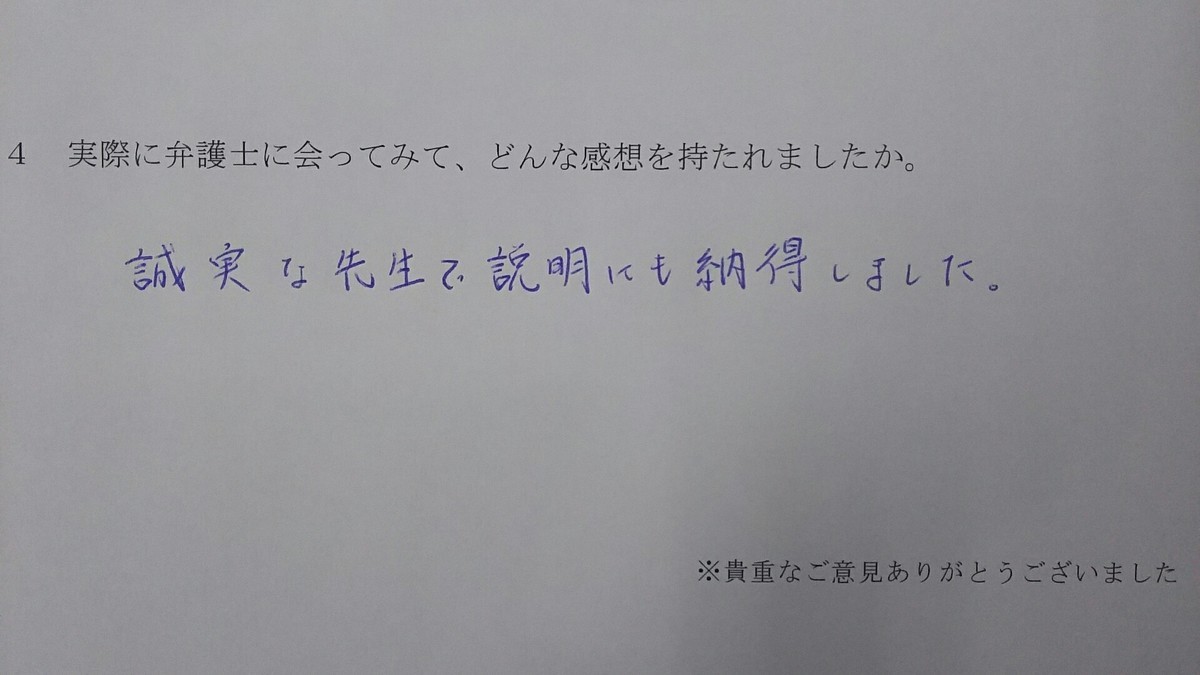 4 実際に弁護士に会ってみて、どんな感想を持たれましたか。
誠実な先生で説明にも納得しました。
※貴重なご意見ありがとうございました